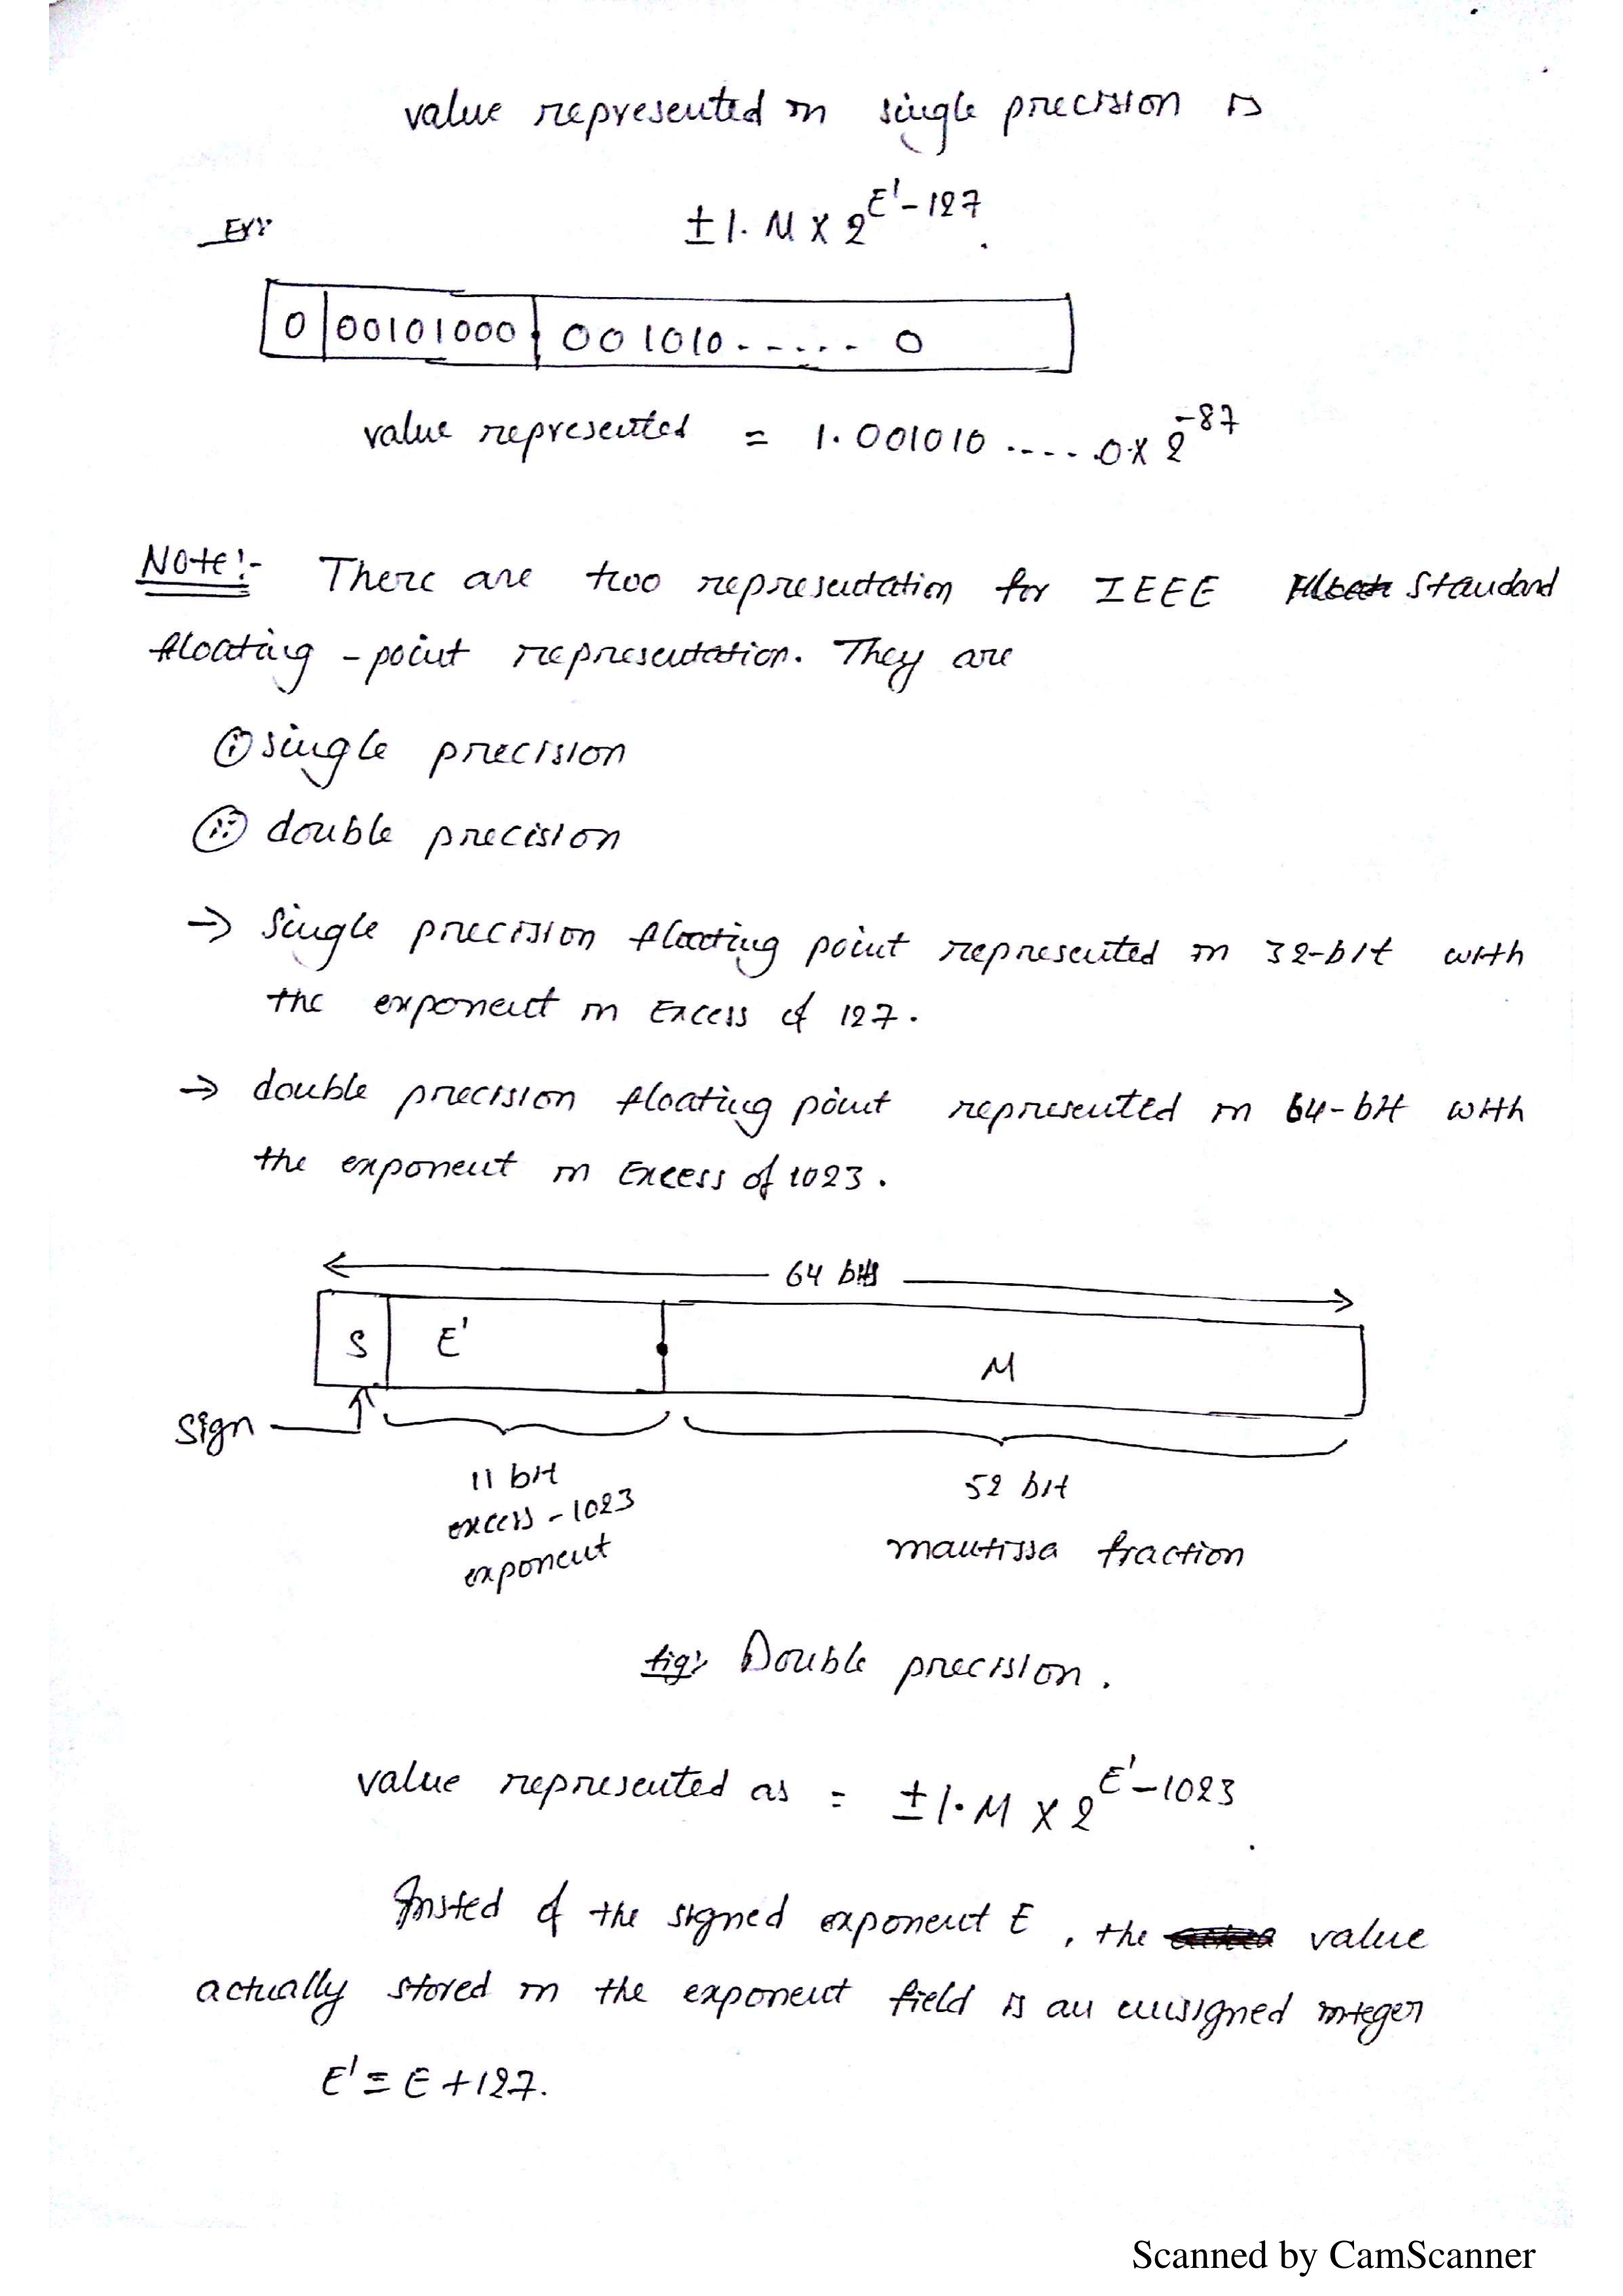 value represented in single precision is
Ex:
±1.M X 2^E'-127.
0 00101000 . 001010...... 0
value represented = 1.001010 .... 0 X 2^-87
Note:- There are two representation for IEEE Standard
floating-point representation. They are
(i) single precision
(ii) double precision
→ Single precision floating point represented in 32-bit with
the exponent in Excess of 127.
→ double precision floating point represented in 64-bit with
the exponent in Excess of 1023.
64 bits
S E' M
Sign
11 bit
excess-1023
exponent
52 bit
mantissa fraction
fig: Double precision.
value represented as = ±1.M X 2^E'-1023.
Insted of the signed exponent E, the value
actually stored in the exponent field is an unsigned integer
E' = E+127.
Scanned by CamScanner